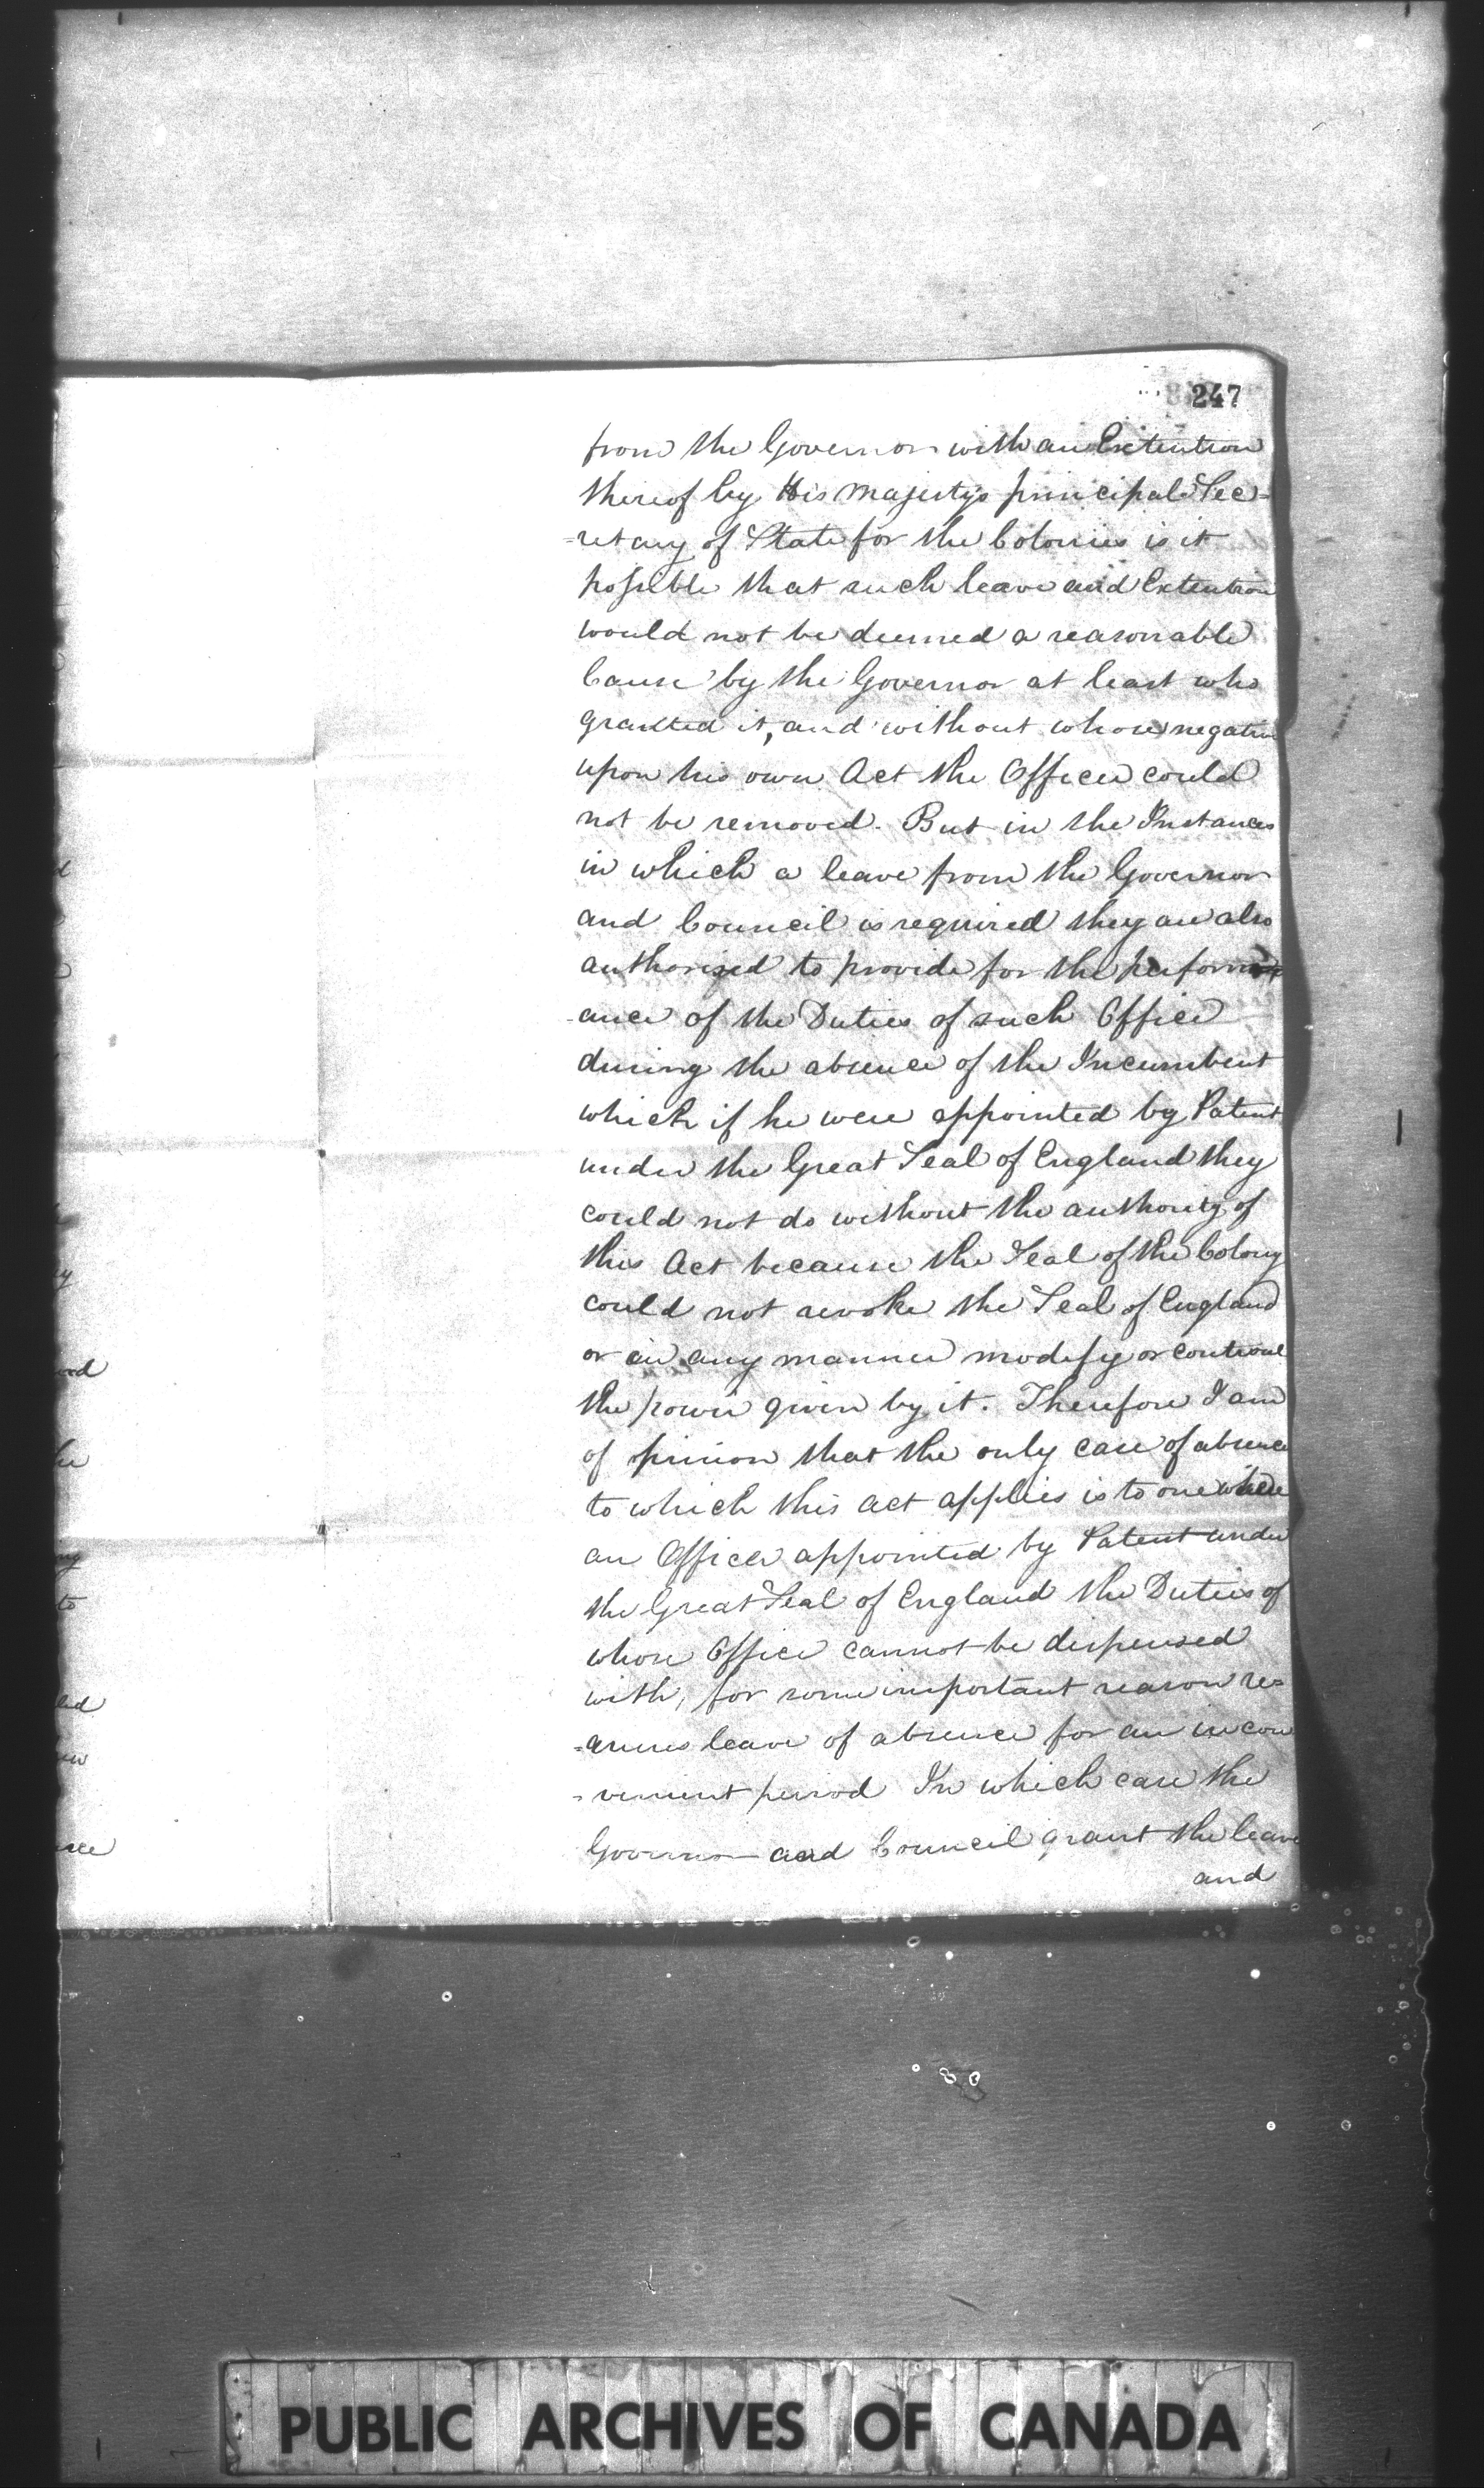 247
from the Governor with an Extention
thereof by His Majesty's principal Sec-
-retary of State for the Colonies is it
possible that such leave and Extention
would not be deemed a reasonable
Cause by the Governor at least who
granted it, and without whose negative
upon his own Act the Officer could
not be removed. But in the Instances
in which a leave from the Governor
and Council is required they are also
authorized to provide for the perform
-ance of the Duties of such Office
during the absence of the Incumbent
which if he were appointed by Patent
under the Great Seal of England they
could not do without the authority of
this Act because the Seal of the Colony
could not revoke the Seal of England
or in any manner modify or controul
the power given by it. Therefore I am
of opinion that the only case of absence
to which this Act applies is to one where
an Officer appointed by Patent under
the Great Seal of England the Duties of
whose Office cannot be dispensed
with, for some important reason re-
-quires leave of absence for an incon
-venient period In which case the
Governor and Council grant the leave
and
d
y
ed
he
ng
to
led
ew
PUBLIC ARCHIVES OF CANADA